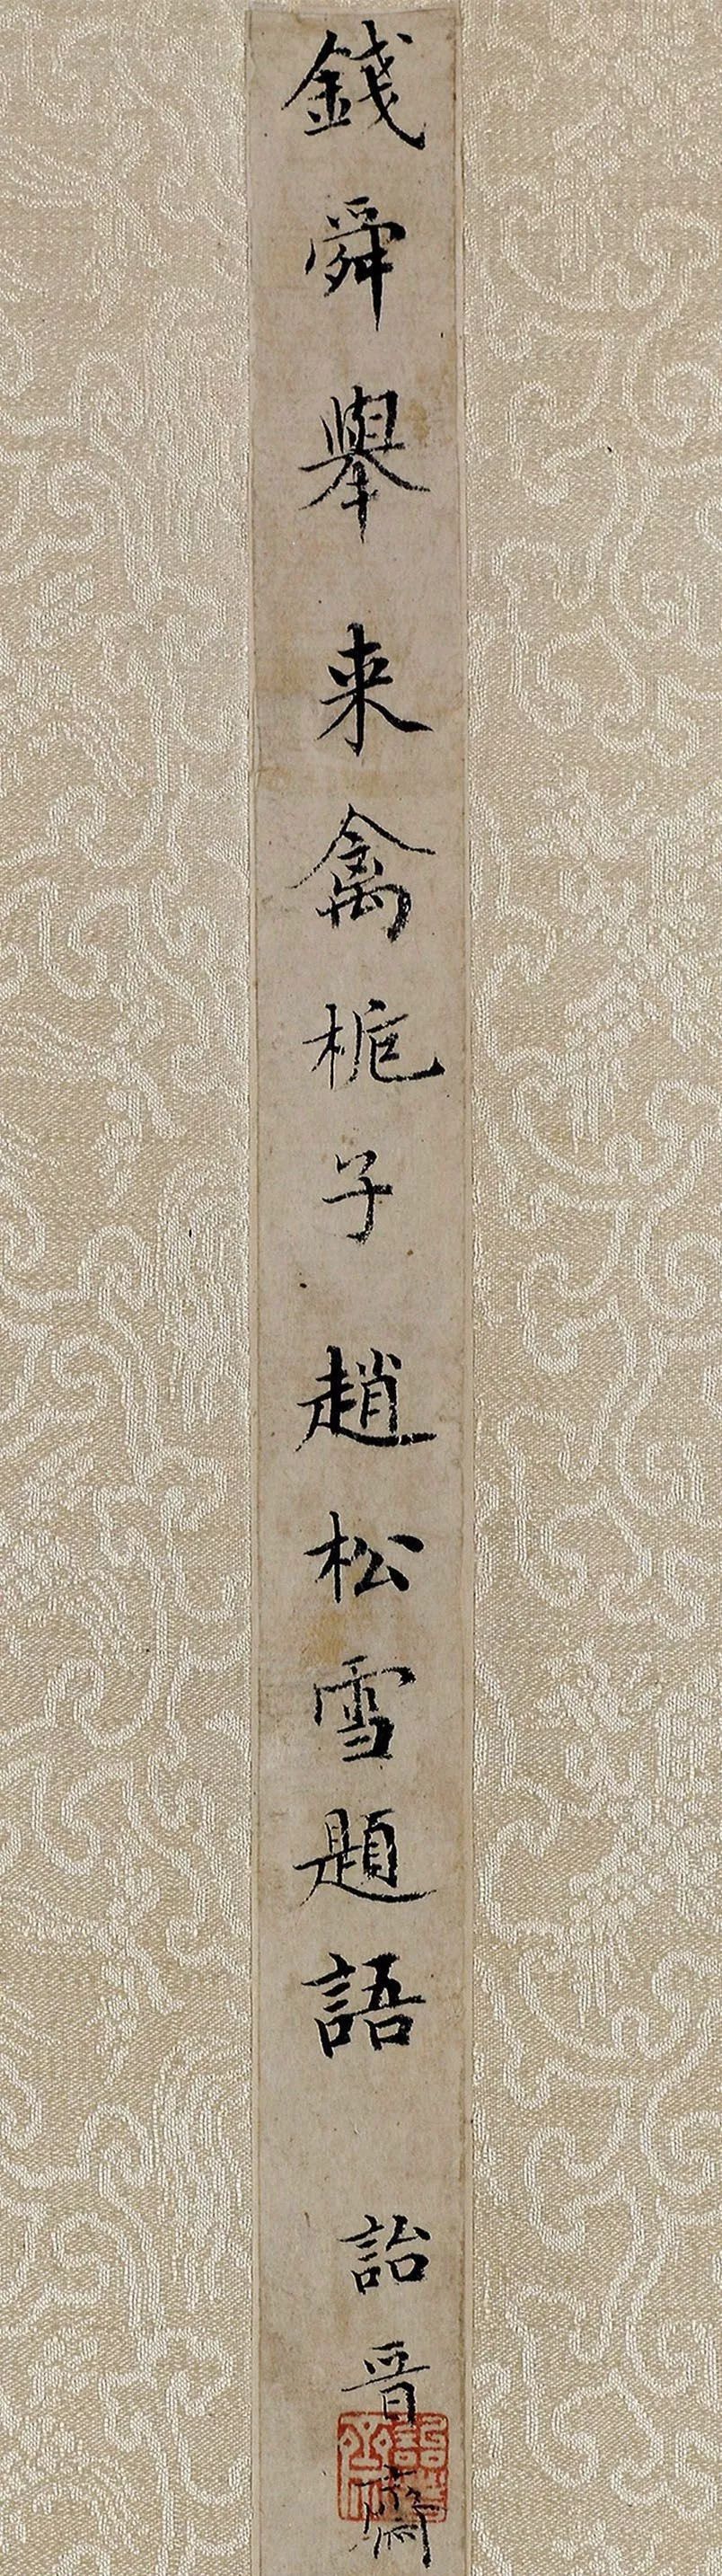 錢舜舉来禽梔子趙松雪題語 詒晋齋